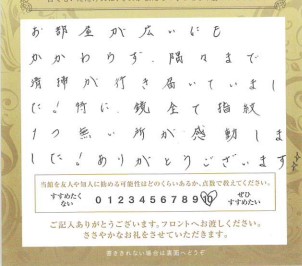 お部屋が広いにも
かかわらず、隅々まで
清掃が行き届いていまし
た！特に、鏡全て指紋
1つ無い所が感動しま
した！ありがとうございます
当館を友人や知人に勧める可能性はどのくらいあるか、点数で教えてください。
すすめたくない 0 1 2 3 4 5 6 7 8 9 10 ぜひすすめたい
ご記入ありがとうございます。フロントへお渡しください。
ささやかなお礼をさせていただきます。
書ききれない場合は裏面へどうぞ